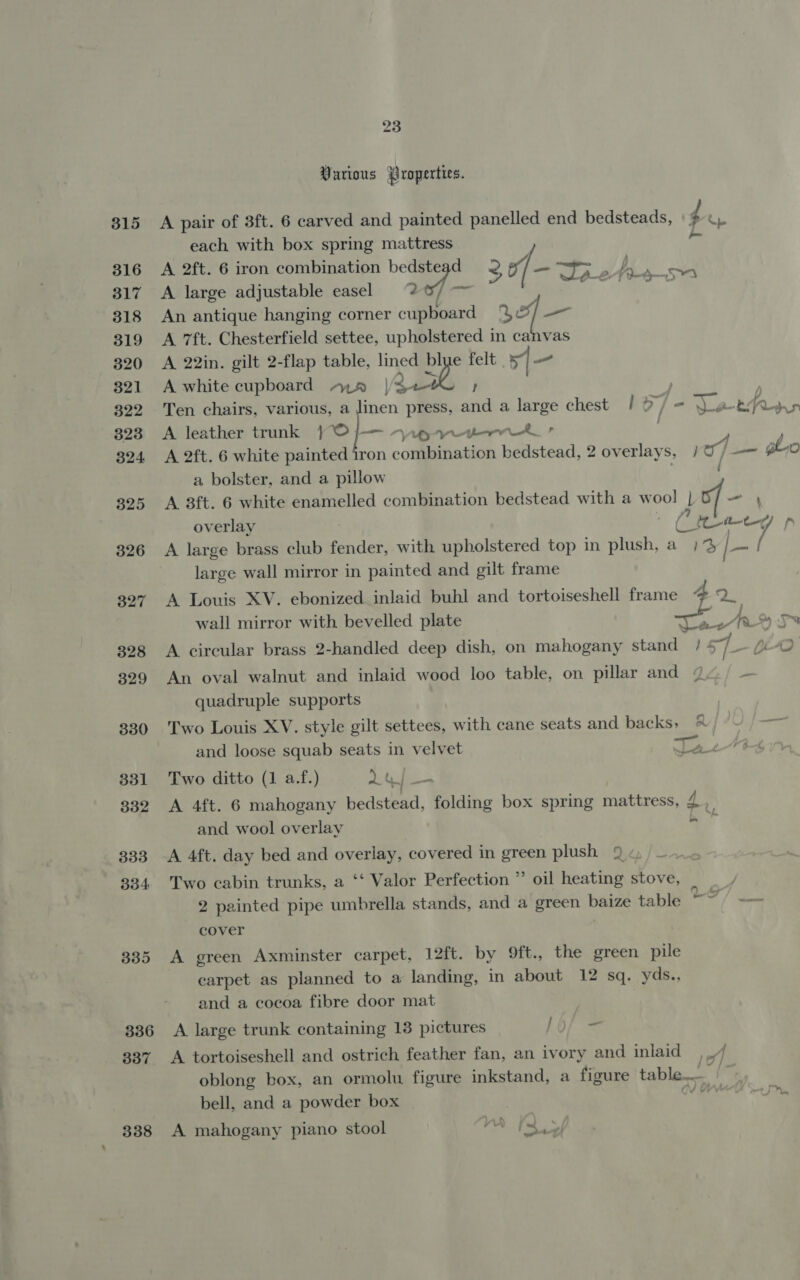 23
Various Properties.
315 A pair of 3ft. 6 carved and painted panelled end bedsteads, £4
each with box spring mattress
316 A 2ft. 6 iron combination bedstead 35/- Jackson
317 A large adjustable easel 20/-
318 An antique hanging corner cupboard 35/-
319 A 7ft. Chesterfield settee, upholstered in canvas
320 A 22in. gilt 2-flap table, lined blue felt 5/-
321 A white cupboard
322 Ten chairs, various, a linen press, and a large chest 15/- Jackson
323 A leather trunk 10/-
324 A 2ft. 6 white painted iron combination bedstead, 2 overlays, 15/-
a bolster, and a pillow
325 A 3ft. 6 white enamelled combination bedstead with a wool 15/-
overlay
326 A large brass club fender, with upholstered top in plush, a
large wall mirror in painted and gilt frame
327 A Louis XV. ebonized inlaid buhl and tortoiseshell frame £2
wall mirror with bevelled plate Jackson
328 A circular brass 2-handled deep dish, on mahogany stand 15/-
329 An oval walnut and inlaid wood loo table, on pillar and
quadruple supports
330 Two Louis XV. style gilt settees, with cane seats and backs,
and loose squab seats in velvet Jackson
331 Two ditto (1 a.f.)
332 A 4ft. 6 mahogany bedstead, folding box spring mattress,
and wool overlay
333 A 4ft. day bed and overlay, covered in green plush
334 Two cabin trunks, a “ Valor Perfection ” oil heating stove,
2 painted pipe umbrella stands, and a green baize table
cover
335 A green Axminster carpet, 12ft. by 9ft., the green pile
carpet as planned to a landing, in about 12 sq. yds.,
and a cocoa fibre door mat
336 A large trunk containing 13 pictures
337 A tortoiseshell and ostrich feather fan, an ivory and inlaid
oblong box, an ormolu figure inkstand, a figure table
bell, and a powder box
338 A mahogany piano stool